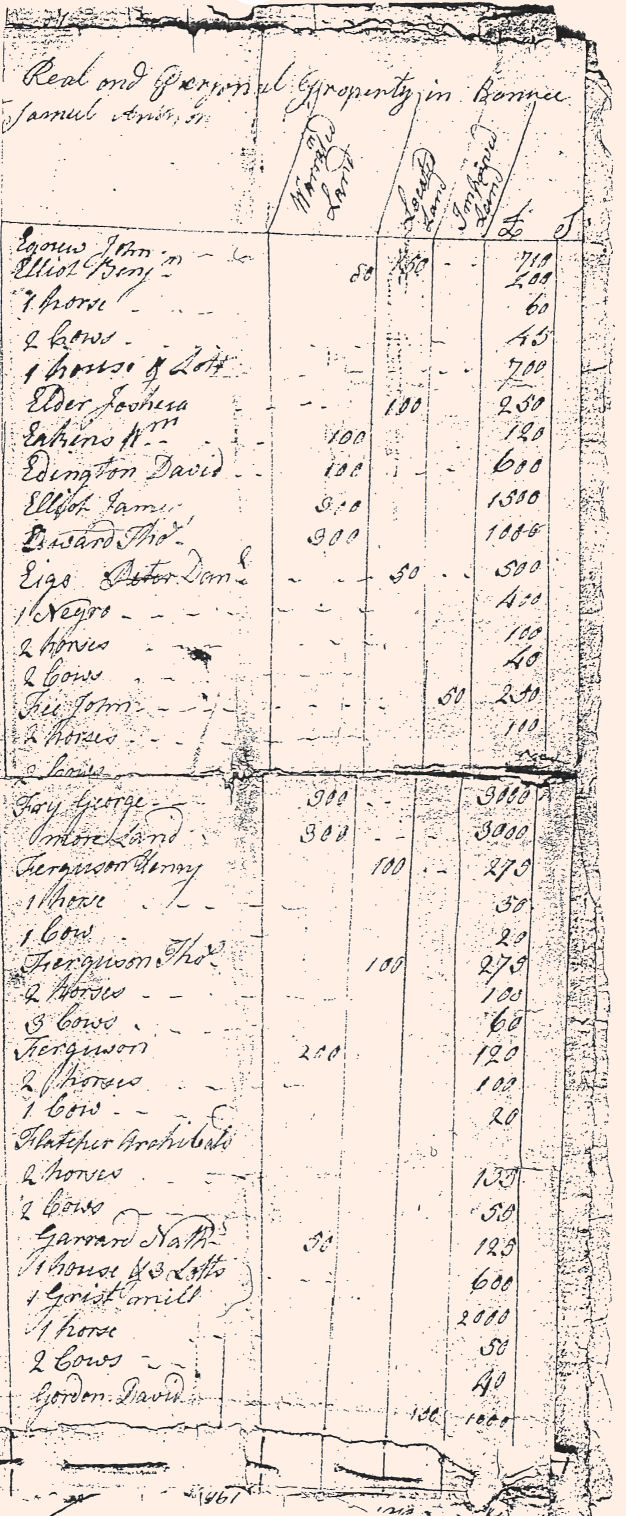 Real and Personal Property in
Samuel
Warranted Land
Located Land
Improved Land
£
Egnew John 710
Elliot Benjn 50 150 200
1 horse 60
2 Cows 45
1 house & Lott 700
Elder Joshua 100 250
Eakins Wm 100 120
Edington David 100 600
Elliot James 300 1500
Edward Thos 300 1000
Eigo Peter Danl 50 500
1 Negro 400
2 horses 100
2 Cows 40
Fee John 50 250
2 horses 100
2 Cows
Fry George 300 3000
more Land 300 3000
Ferguson Henry 100 275
1 horse 50
1 Cow 20
Ferguson Thos 100 275
2 horses 100
3 Cows 60
Ferguson 200 120
2 horses 100
1 Cow 20
Flatcher Archibald
2 horses 135
2 Cows 50
Garrard Nathl 50 125
1 house & 3 Lotts 600
1 Grist mill 2000
1 horse 50
2 Cows 40
Gordon David 150 1000